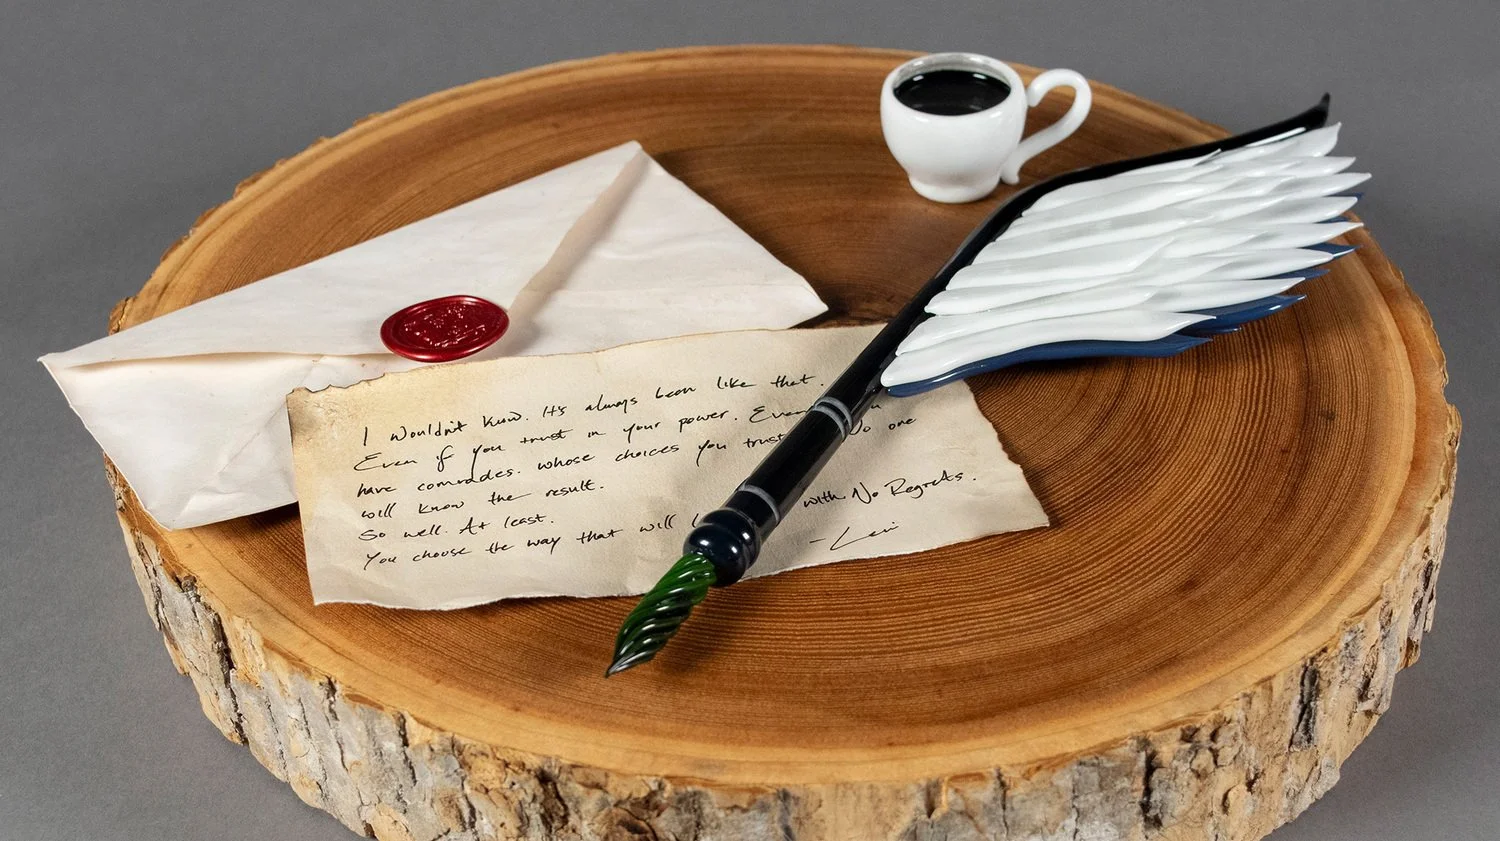 I wouldn't know. It's always been like that.
Even if you trust in your power. Even
have comrades. whose choices you trust No one
will know the result.
So well. At least.
You choose the way that will with No Regrets.
-Levi